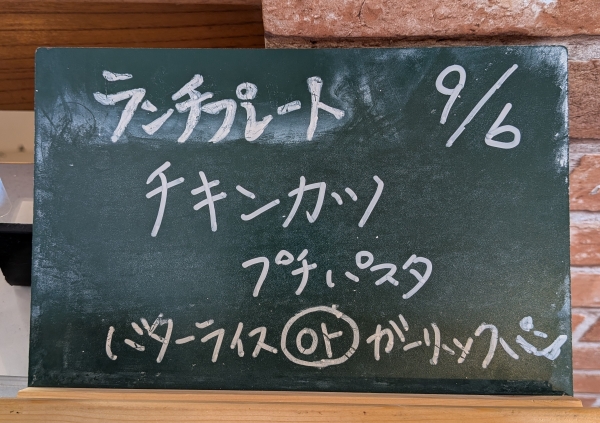 ランチプレート 9/6
チキンカツ
プチパスタ
バターライス or ガーリックパン